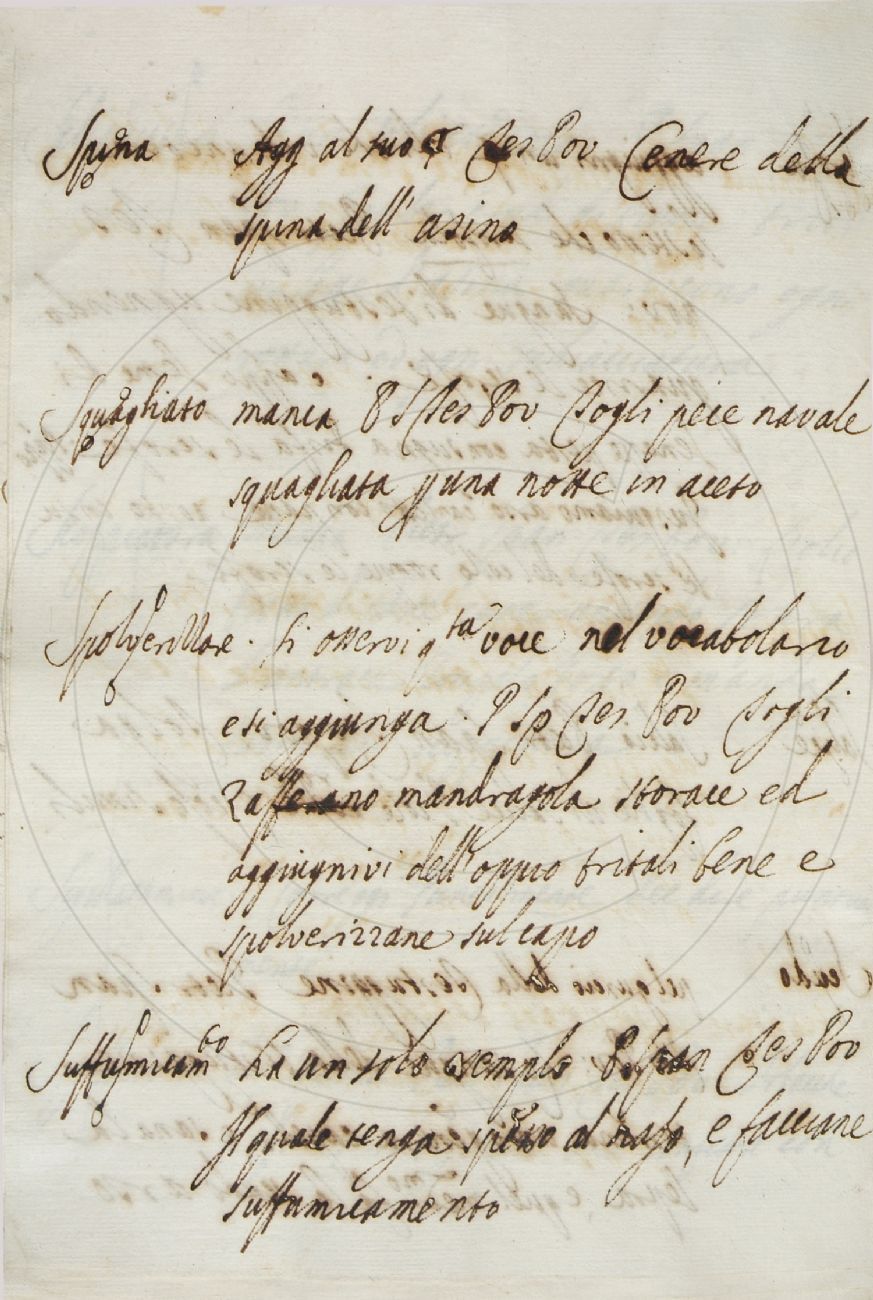 Spina Agg al suo § Tes Pov Cenere della
spina dell' asino
Squagliato manca P S Tes Pov Togli pece navale
squagliata p una notte in aceto
Spolverizzare. Si osservi q.ta voce nel vocabolario
e si aggiunga. P Sp Tes. Pov Togli
Zafferano mandragola storace ed
aggiugnivi dell'oppio tritali bene e
spolverizzane sul capo
Suffumicam.to ha un solo esemplo Tes Pov
Il quale tenga spesso al naso, e facciane
suffumicamento